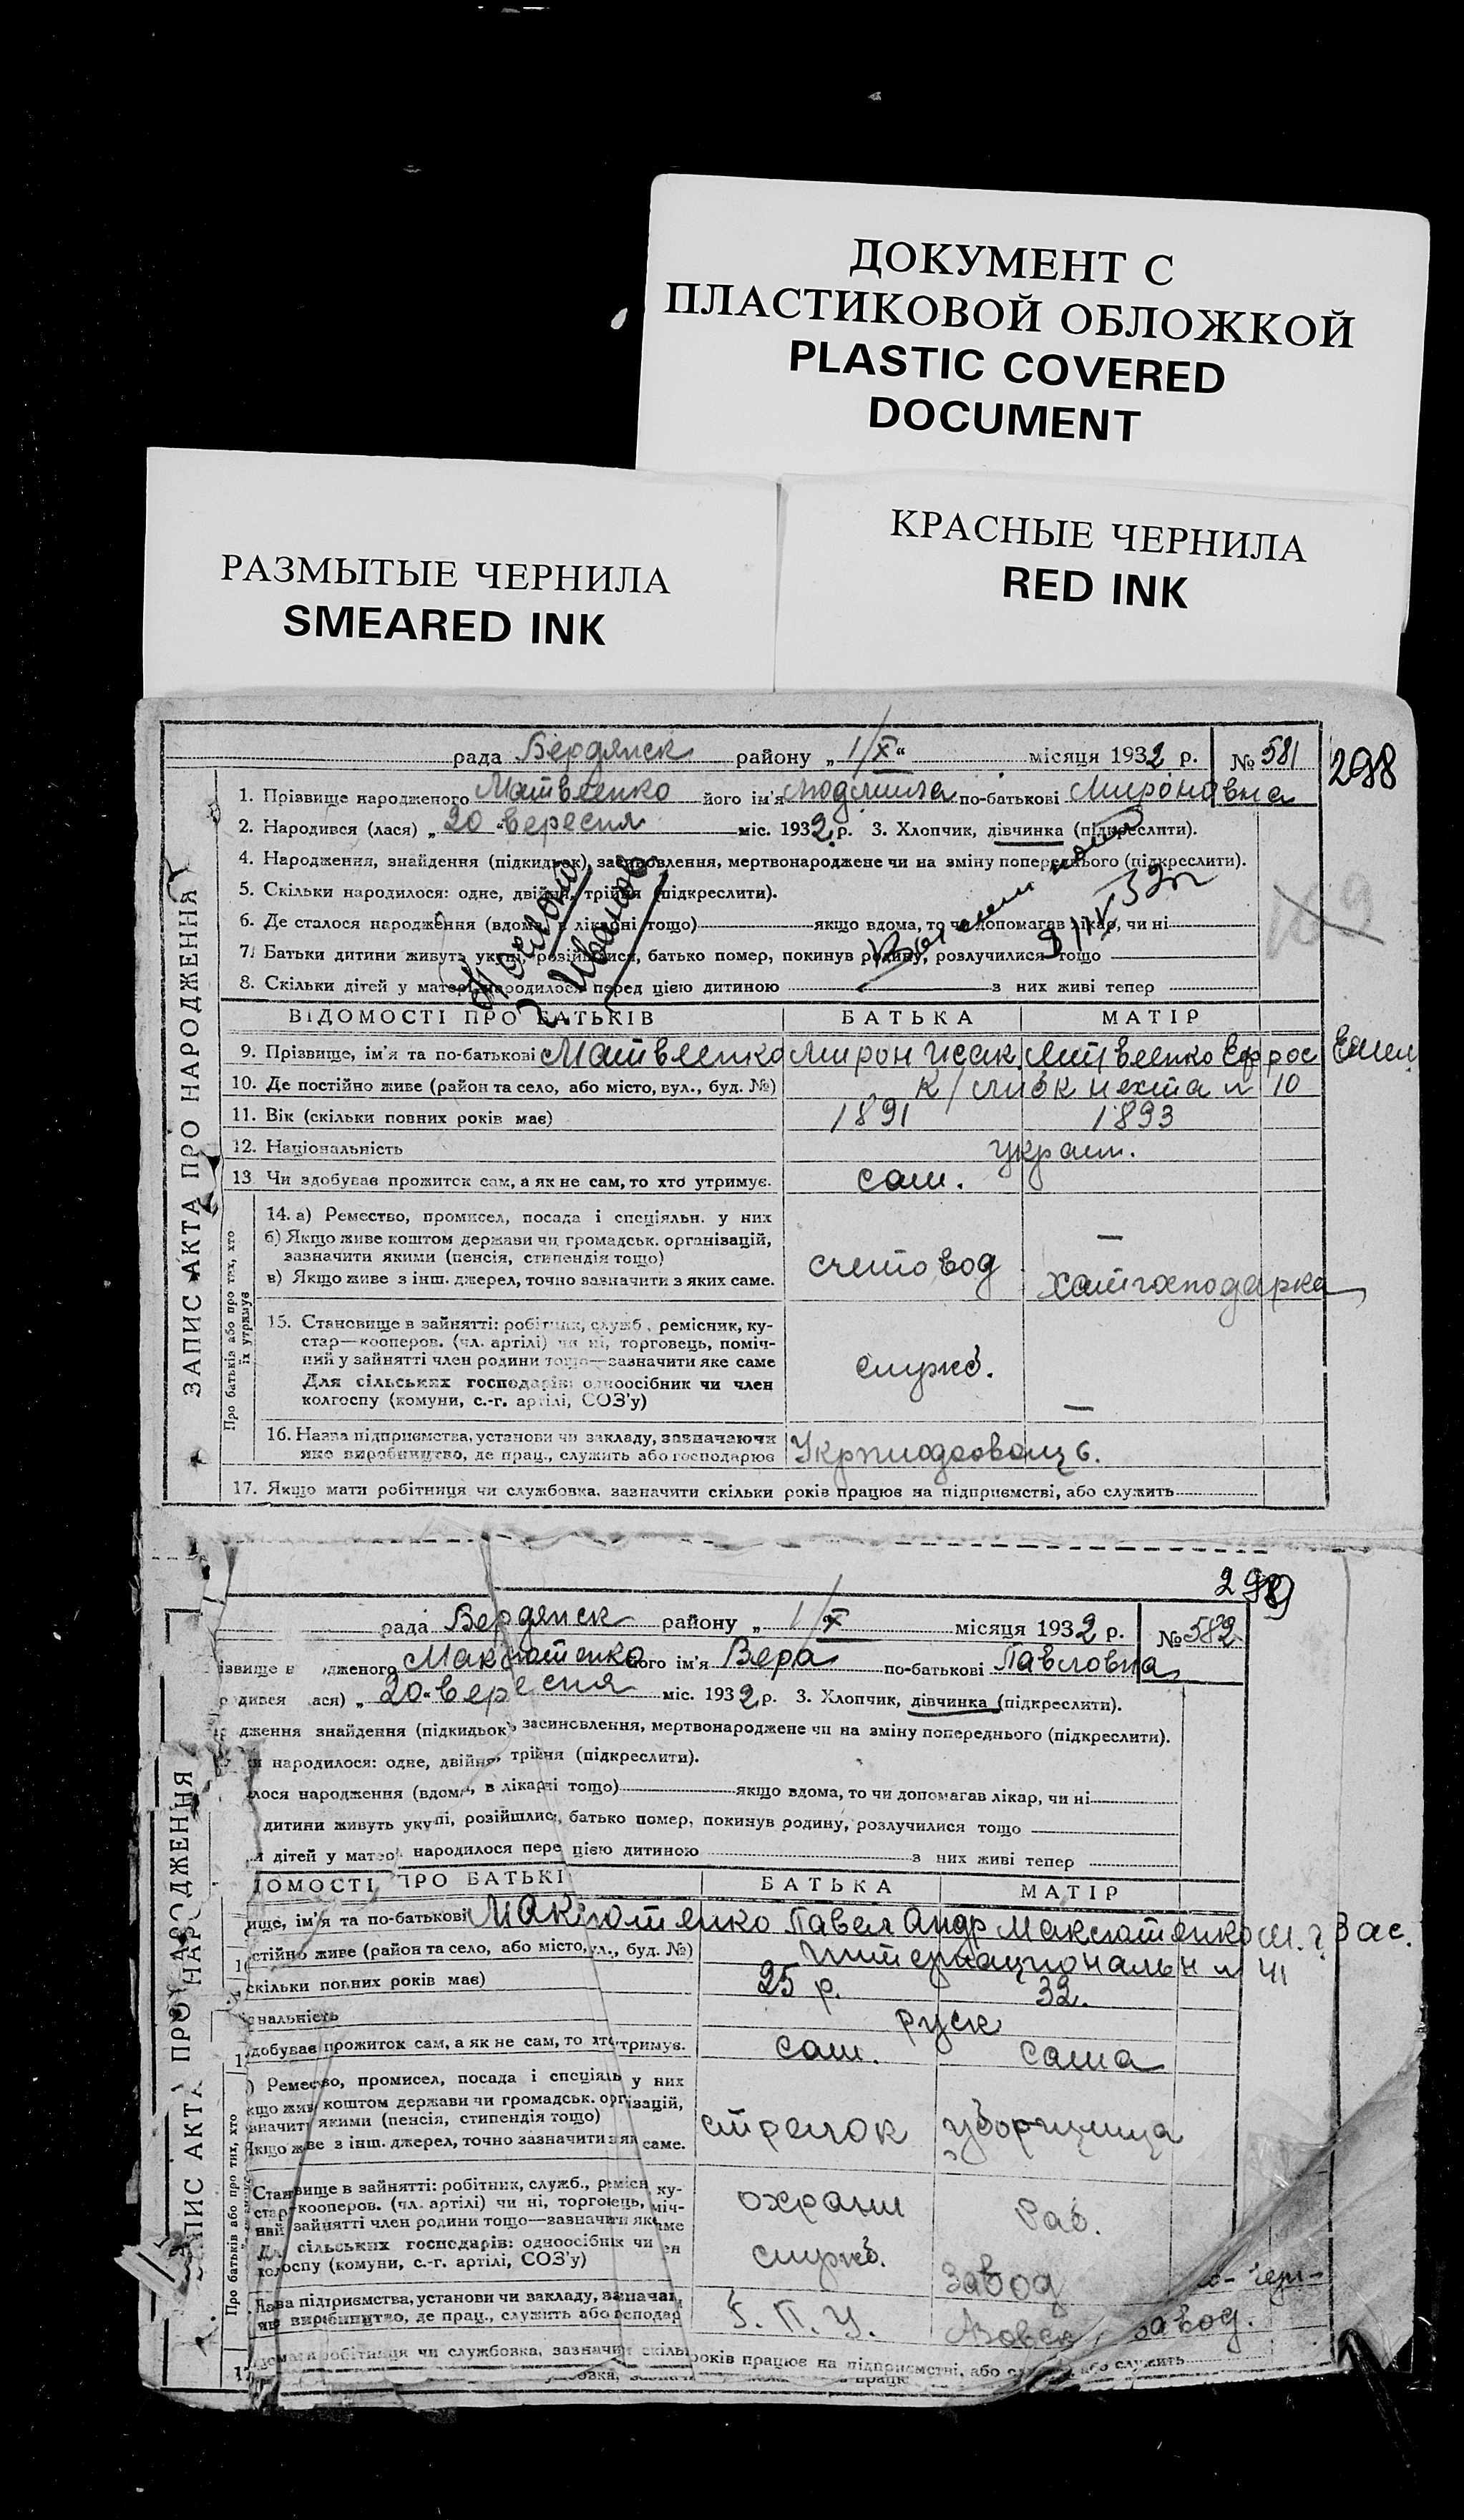 ДОКУМЕНТ С
ПЛАСТИКОВОЙ ОБЛОЖКОЙ
PLASTIC COVERED
DOCUMENT
РАЗМЫТЫЕ ЧЕРНИЛА
SMEARED INK
КРАСНЫЕ ЧЕРНИЛА
RED INK
рада Бердянск району „ 1/X “ місяця 1932 р. № 581
298
1. Прізвище народженого Матвеенко його ім'я Людмила по-батькові Мироновна
2. Народився (лася) „ 20 “ вересня міс. 1932 р. 3. Хлопчик, дівчинка (підкреслити).
4. Народження, знайдення (підкидьок), засиновлення, мертвонароджене чи на зміну попереднього (підкреслити).
5. Скільки народилося: одне, двійня, трійня (підкреслити).
6. Де сталося народження (вдома, в лікарні тощо) якщо вдома, то чи допомагав лікар, чи ні
7. Батьки дитини живуть укупі, розійшлися, батько помер, покинув родину, розлучилися тощо
8. Скільки дітей у матері народилося перед цією дитиною з них живі тепер
ЗАПИС АКТА ПРО НАРОДЖЕННЯ
ВІДОМОСТІ ПРО БАТЬКІВ БАТЬКА МАТІР
9. Прізвище, ім'я та по-батькові Матвеенко Мирон Исак. Матвеенко Ефрос
10. Де постійно живе (район та село, або місто, вул., буд. №) 10
11. Вік (скільки повних років має) 1891 1893
12. Національність украин.
13. Чи здобуває прожиток сам, а як не сам, то хто утримує. сам.
Про батьків або про тих, хто їх утримує
14. а) Ремество, промисел, посада і спеціяльн. у них
б) Якщо живе коштом держави чи громадськ. організацій,
зазначити якими (пенсія, стипендія тощо)
в) Якщо живе з інш. джерел, точно зазначити з яких саме.
счетовод —
хатгосподарка
15. Становище в зайнятті: робітник, служб., ремісник, ку-
стар—кооперов. (чл. артілі) чи ні, торговець, поміч-
ний у зайнятті член родини тощо—зазначити яке саме
Для сільських господарів: одноосібник чи член
колгоспу (комуни, с.-г. артілі, СОЗ'у)
служб. —
16. Назва підприємства, установи чи закладу, зазначаючи
яке виробництво, де прац., служить або господарює
17. Якщо мати робітниця чи службовка, зазначити скільки років працює на підприємстві, або служить
299
рада Бердянск району „ 1/X місяця 1932 р. № 582
ізвище н дженого Максютенко його ім'я Вера по-батькові Павловна
родився лася) „ 20 “ вересня міс. 1932 р. 3. Хлопчик, дівчинка (підкреслити).
дження знайдення (підкидьок), засиновлення, мертвонароджене чи на зміну попереднього (підкреслити).
и народилося: одне, двійня, трійня (підкреслити).
лося народження (вдома, в лікарні тощо) якщо вдома, то чи допомагав лікар, чи ні
дитини живуть укупі, розійшлися, батько помер, покинув родину, розлучилися тощо
дітей у матері народилося пере цією дитиною з них живі тепер
ЗАПИС АКТА ПРО НАРОДЖЕННЯ
ДОМОСТІ ПРО БАТЬКІ БАТЬКА МАТІР
ище, ім'я та по-батькові Максютенко Павел Андр Максютенко
стійно живе (район та село, або місто, ул., буд. №) Интернациональн 41
скільки повних років має) 25 р. 32.
ональність руск
добуває прожиток сам, а як не сам, то хто утримує. сам. сама
Про батьків або про тих, хто
) Ремество, промисел, посада і спеціяль у них
кщо жив коштом держави чи громадськ. організацій,
значит якими (пенсія, стипендія тощо)
Якщо живе з інш. джерел, точно зазначити з як саме.
стрелок уборщица
Становище в зайнятті: робітник, служб., реміся ку-
стар-кооперов. (чл. артілі) чи ні, торговець, міч-
ний зайнятті член родини тощо—зазначити яке саме
Дл сільських господарів: одноосібник чи ен
колгоспу (комуни, с.-г. артілі, СОЗ'у)
охраны Раб.
служб.
зава підприємства, установи чи закладу, зазначаю
яке виробництво, де прац., служить або господар
Г. П. У. завод
завод.
робітниця чи службовка, зазначит скільк років працює на підприємстві, або служить